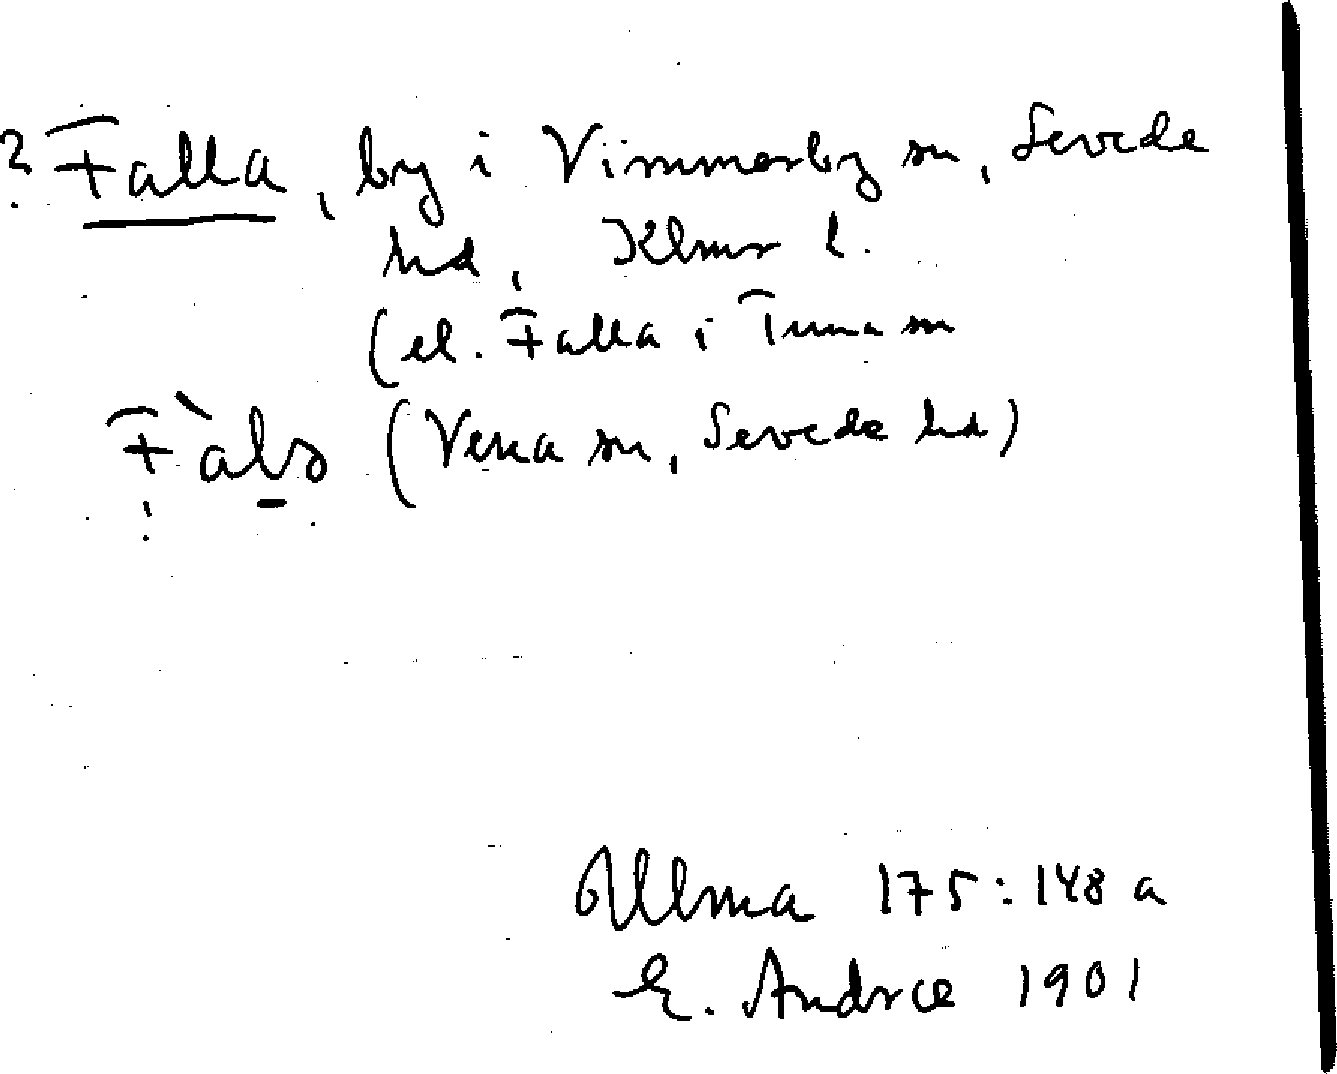 ? Falla, by i Vimmerby sn, Sevede
hd, Klmr l.
(el. Falla i Tuna sn
Fàlo (Vena sn, Sevede hd)
!
Ulma 175:148 a
E. Andræ 1901